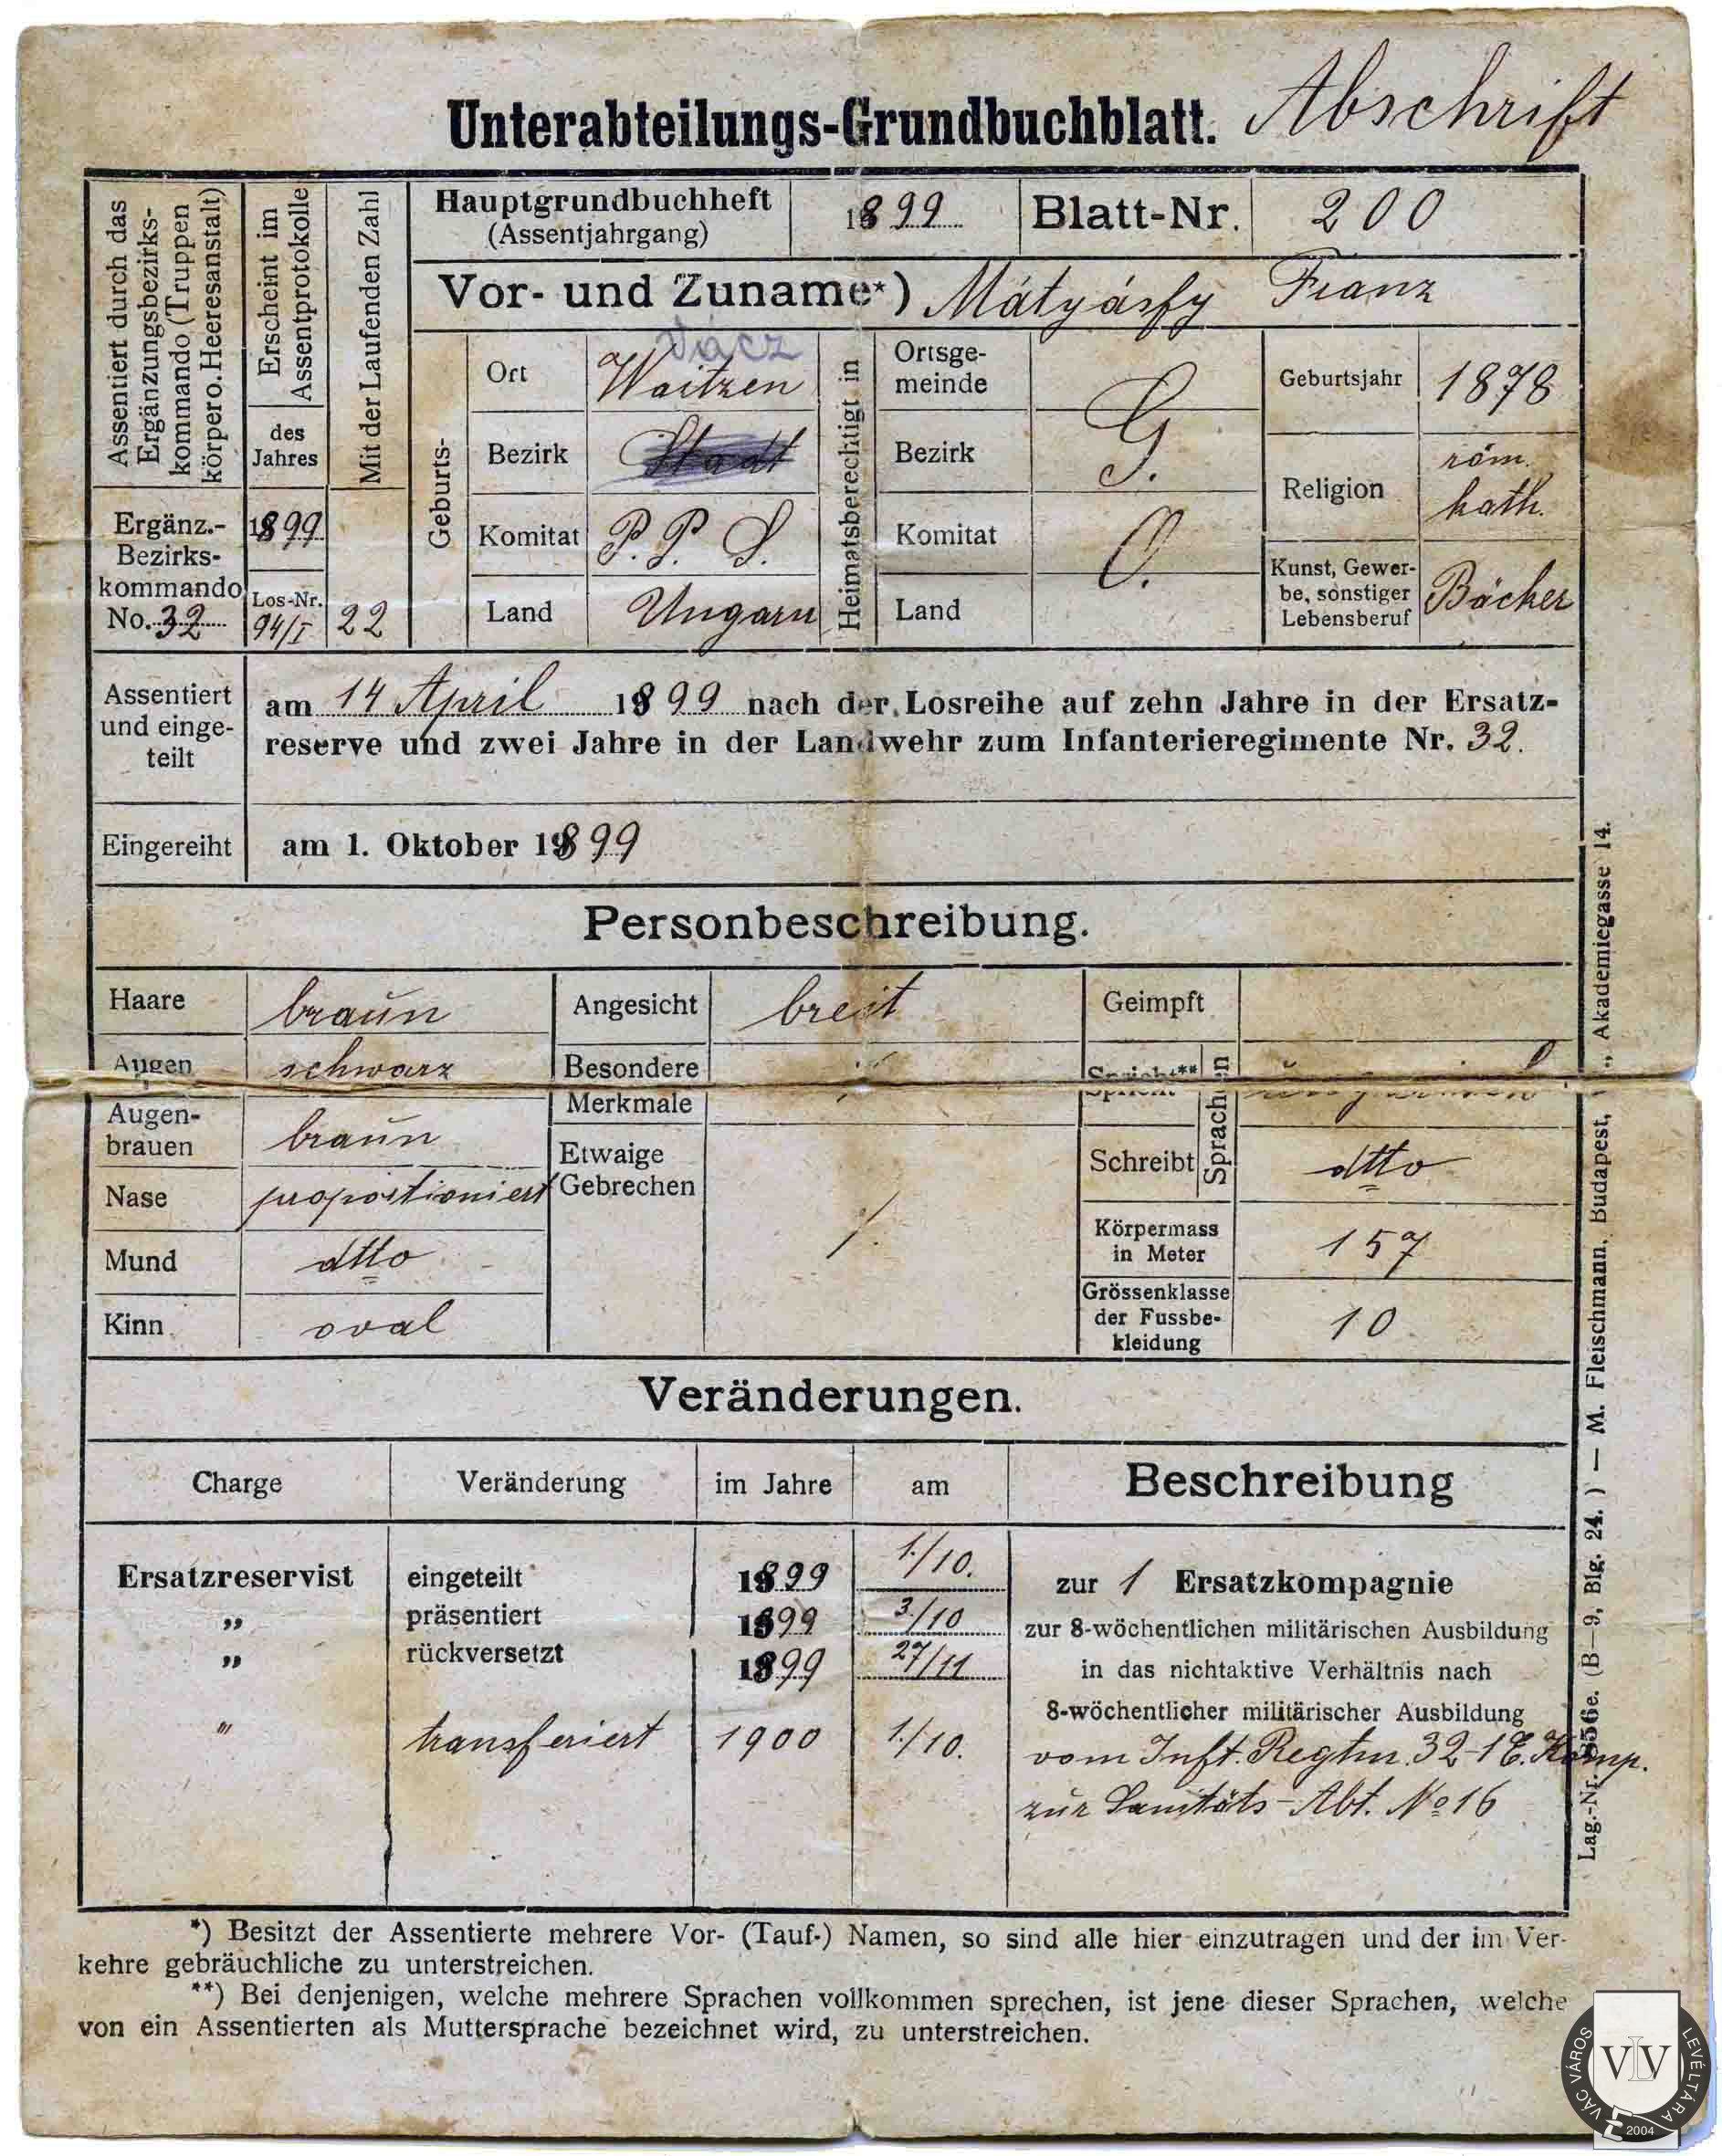 Unterabteilungs-Grundbuchblatt. Abschrift
Assentiert durch das
Ergänzungsbezirks-
kommando (Truppen
körper o. Heeresanstalt)
Erscheint im
Assentprotokolle
des
Jahres
Mit der Laufenden Zahl
Ergänz.-
Bezirks-
kommando
No. 32
1899
Los-Nr.
94/I
22
Hauptgrundbuchheft
(Assentjahrgang)
1899
Blatt-Nr. 200
Vor- und Zuname*) Mátyásfy Franz
Geburts-
Ort
Vácz
Waitzen
Bezirk Stadt
Komitat P. P. S.
Land Ungarn
Heimatsberechtigt in
Ortsge-
meinde
Bezirk
G.
Komitat
O.
Land
Geburtsjahr 1878
Religion
röm.
kath.
Kunst, Gewer-
be, sonstiger
Lebensberuf
Bäcker
Assentiert
und einge-
teilt
am 14 April 1899 nach der Losreihe auf zehn Jahre in der Ersatz-
reserve und zwei Jahre in der Landwehr zum Infanterieregimente Nr. 32.
Eingereiht am 1. Oktober 1899
Personbeschreibung.
Haare braun
Augen schwarz
Augen-
brauen
braun
Nase proportioniert
Mund dtto
Kinn oval
Angesicht breit
Besondere
Merkmale
Etwaige
Gebrechen
/.
Geimpft
Spricht**
Sprachen
Schreibt dtto
Körpermass
in Meter
157
Grössenklasse
der Fussbe-
kleidung
10
Veränderungen.
Charge Veränderung im Jahre am Beschreibung
Ersatzreservist eingeteilt 1899 1./10. zur 1 Ersatzkompagnie
„ präsentiert 1899 3./10 zur 8-wöchentlichen militärischen Ausbildung
„ rückversetzt 1899 27/11 in das nichtaktive Verhältnis nach
8-wöchentlicher militärischer Ausbildung
" transferiert 1900 1./10. vom Inft. Regtm. 32-1 E. Komp.
zur Sanitäts-Abt. No 16
*) Besitzt der Assentierte mehrere Vor- (Tauf-) Namen, so sind alle hier einzutragen und der im Ver-
kehre gebräuchliche zu unterstreichen.
**) Bei denjenigen, welche mehrere Sprachen vollkommen sprechen, ist jene dieser Sprachen, welche
von ein Assentierten als Muttersprache bezeichnet wird, zu unterstreichen.
Lag.-Nr. 856e. (B—9, Blg. 24.) — M. Fleischmann, Budapest, Akademiegasse 14.
VÁC VÁROS LEVÉLTÁRA
VLV
2004